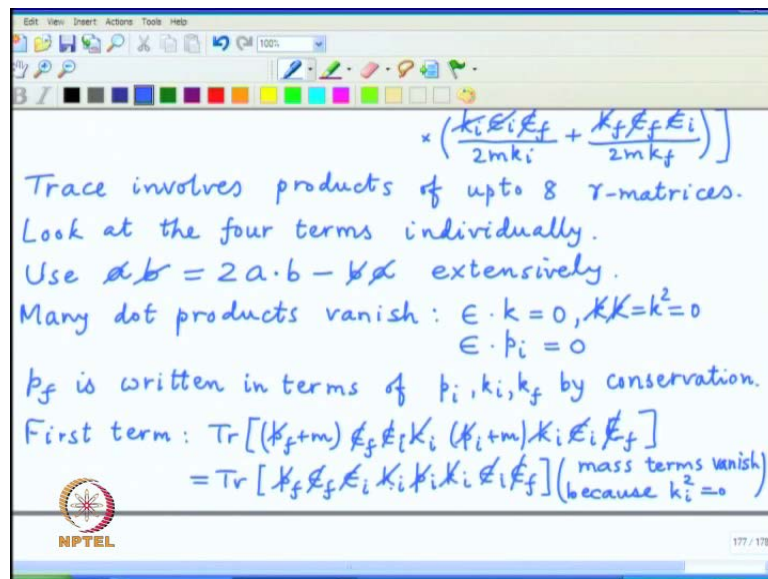 Edit View Insert Actions Tools Help
100%
B I
× (k̸ᵢ ε̸ᵢ ε̸_f / 2mkᵢ + k̸_f ε̸_f ε̸ᵢ / 2mk_f)]
Trace involves products of upto 8 γ-matrices.
Look at the four terms individually.
Use a̸b̸ = 2a·b − b̸a̸ extensively.
Many dot products vanish : ϵ·k = 0, k̸k̸=k²=0
ϵ·pᵢ = 0
p_f is written in terms of pᵢ, kᵢ, k_f by conservation.
First term : Tr[(p̸_f+m) ε̸_f ε̸ᵢ k̸ᵢ (p̸ᵢ+m) k̸ᵢ ε̸ᵢ ε̸_f]
= Tr [p̸_f ε̸_f ε̸ᵢ k̸ᵢ p̸ᵢ k̸ᵢ ε̸ᵢ ε̸_f] (mass terms vanish because kᵢ²=0)
NPTEL
177 / 178